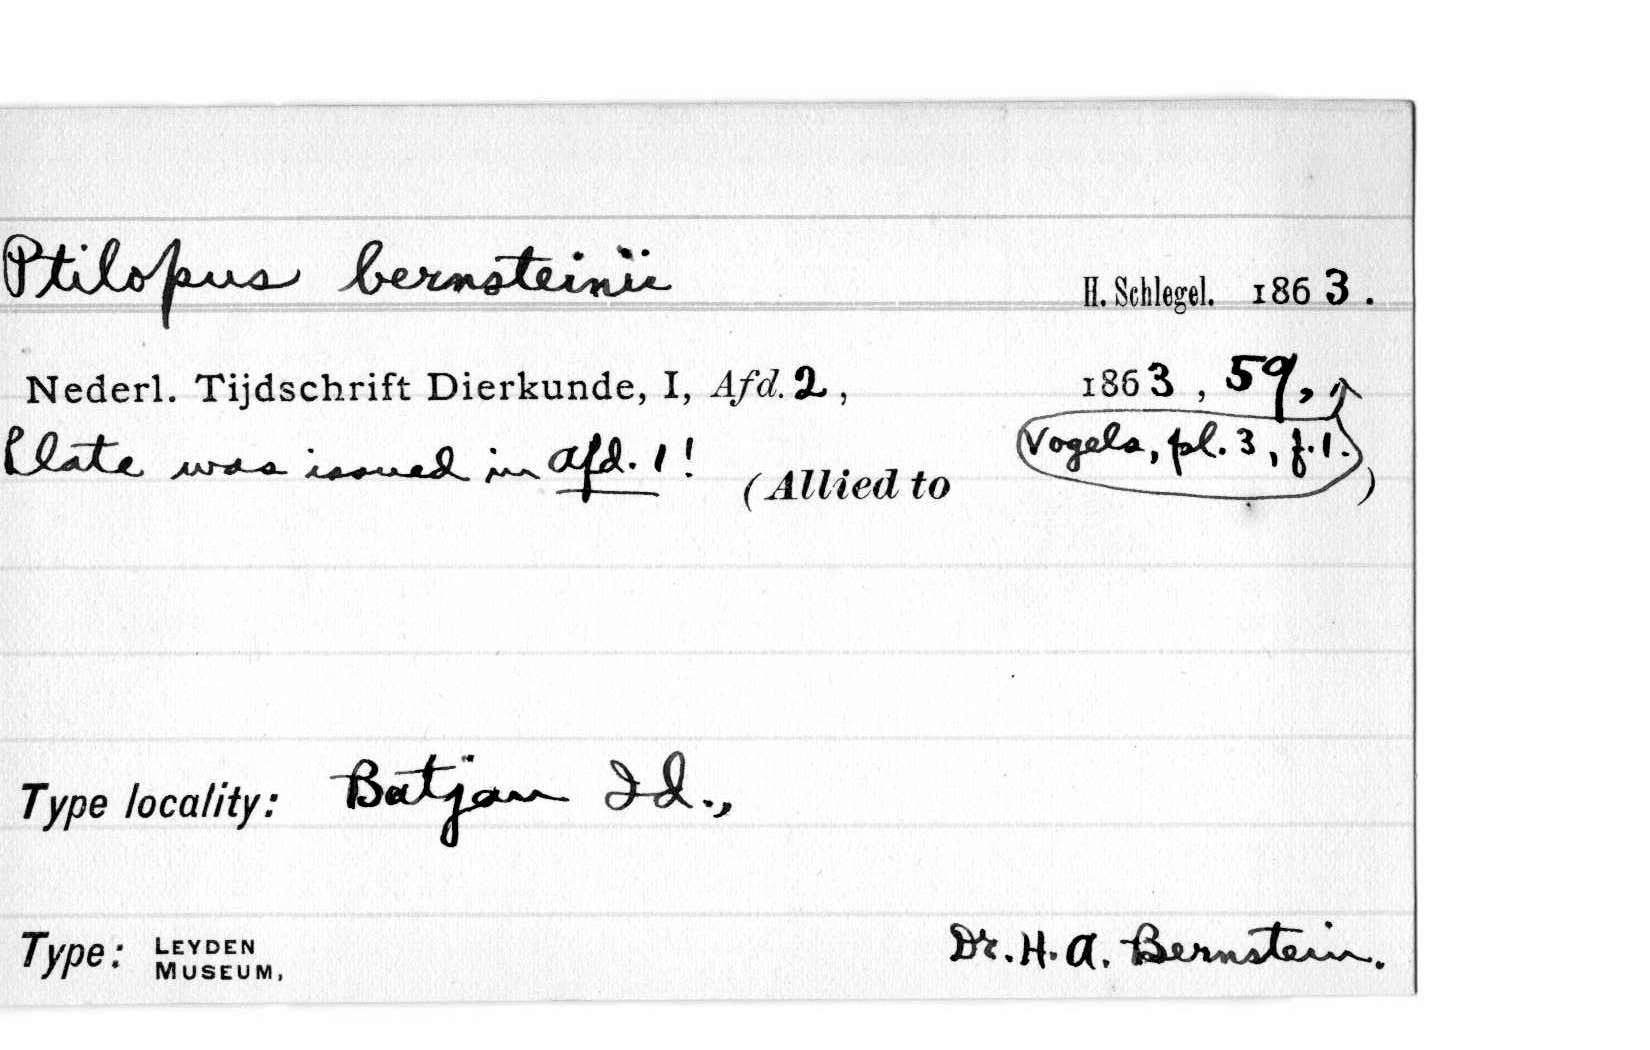 Ptilopus bernsteinii H. Schlegel. 1863.
Nederl. Tijdschrift Dierkunde, I, Afd. 2, 1863, 59,
Vogels, pl. 3, f. 1.
Plate was issued in Afd. 1!
(Allied to )
Type locality: Batjan Id.,
Type: LEYDEN MUSEUM, Dr. H. A. Bernstein.